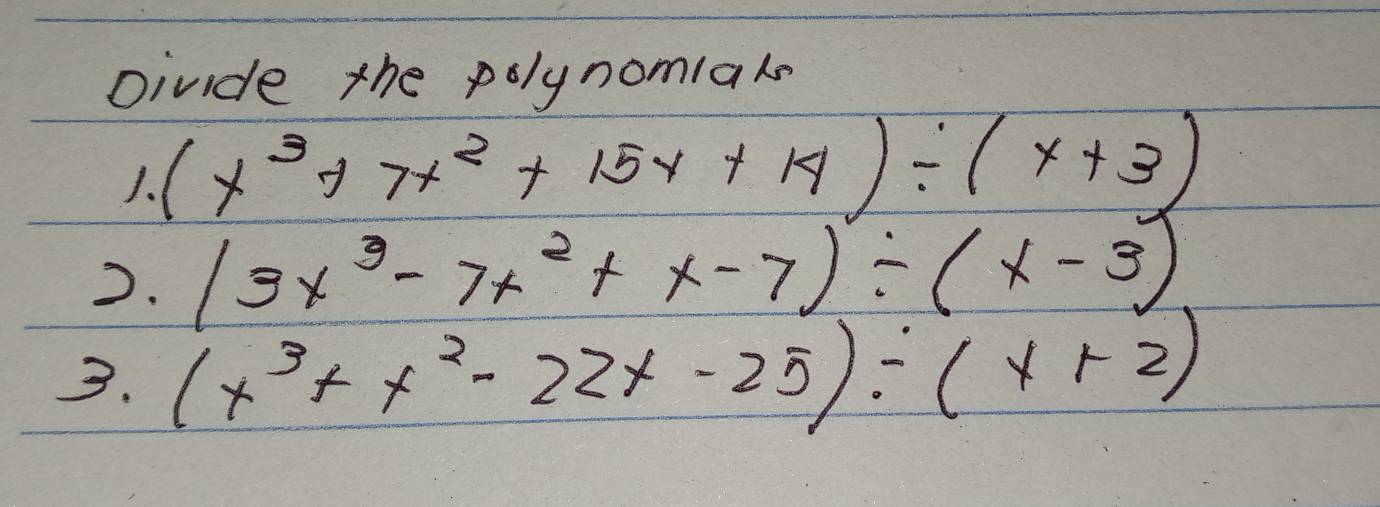 Divide the polynomials
1. (x³ + 7x² + 15x + 14) ÷ (x + 3)
2. (3x³ - 7x² + x - 7) ÷ (x - 3)
3. (x³ + x² - 22x - 25) ÷ (x + 2)